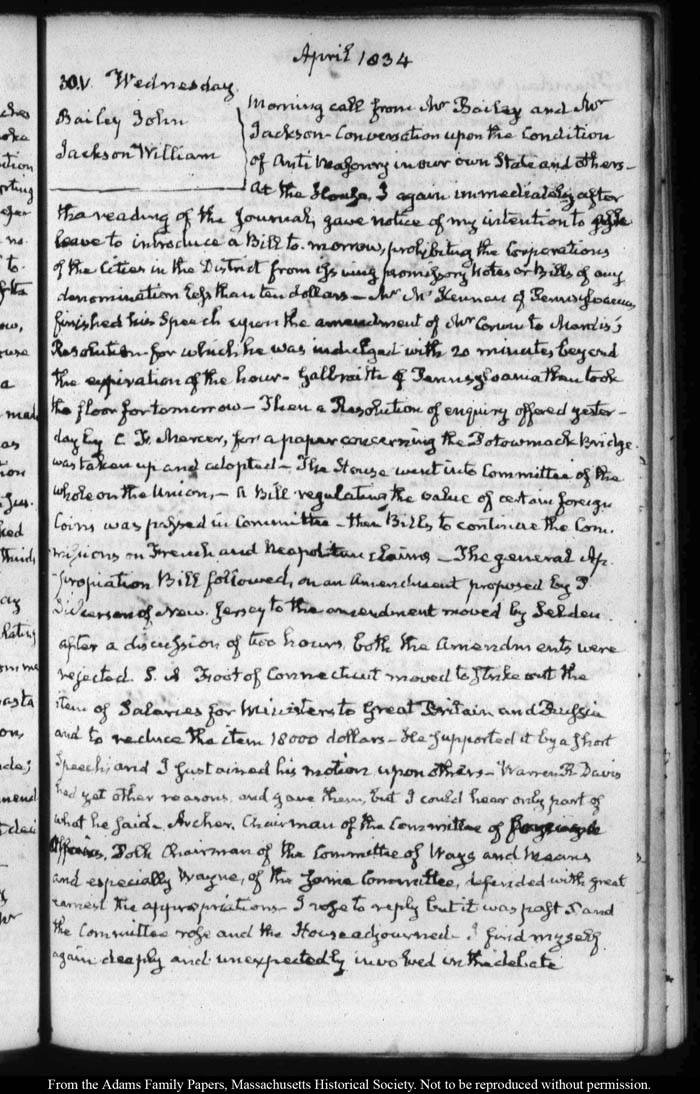 April 1834
30. V. Wednesday.
Bailey John
Jackson William
Morning call from Mr Bailey and Mr
Jackson - Conversation upon the Condition
of Anti Masonry in our own State and others -
At the House, I again immediately after
the reading of the Journal, gave notice of my intention to ask
leave to introduce a Bill to-morrow, prohibiting the Corporations
of the Cities in the District from issuing promissory Notes or Bills of any
denomination less than ten dollars - Mr McKennan of Pennsylvania,
finished his Speech upon the amendment of Mr Corwin to Mardis's
Resolution - for which he was indulged with 20 minutes beyond
the expiration of the hour - Galbraith of Pennsylvania then took
the floor for tomorrow - Then a Resolution of enquiry offered yester-
day by C. F. Mercer, for a paper concerning the Potowmack Bridge.
was taken up and adopted - The House went into Committee of the
whole on the Union, - A Bill regulating the value of certain foreign
Coins was passed in Committee - then Bills to continue the Com-
missions on French and Neapolitan claims - The general Ap-
propriation Bill followed, on an Amendment proposed by P.
Dickerson of New-Jersey to the amendment moved by Selden.
after a discussion of two hours, both the Amendments were
rejected. S. A. Foot of Connecticut moved to strike out the
item of Salaries for Ministers to Great Britain and Russia
and to reduce the item 18000 dollars - He supported it by a short
Speech, and I sustained his motion upon others - Warren R. Davis
had yet other reasons, and gave them, but I could hear only part of
what he said - Archer, Chairman of the Committee of foreign
Affairs, Polk Chairman of the Committee of Ways and Means
and especially Wayne, of the same Committee, defended with great
earnest the appropriations - I rose to reply but it was past 5 and
the Committee rose and the House adjourned - I find myself
again deeply and unexpectedly involved in the debate
From the Adams Family Papers, Massachusetts Historical Society. Not to be reproduced without permission.